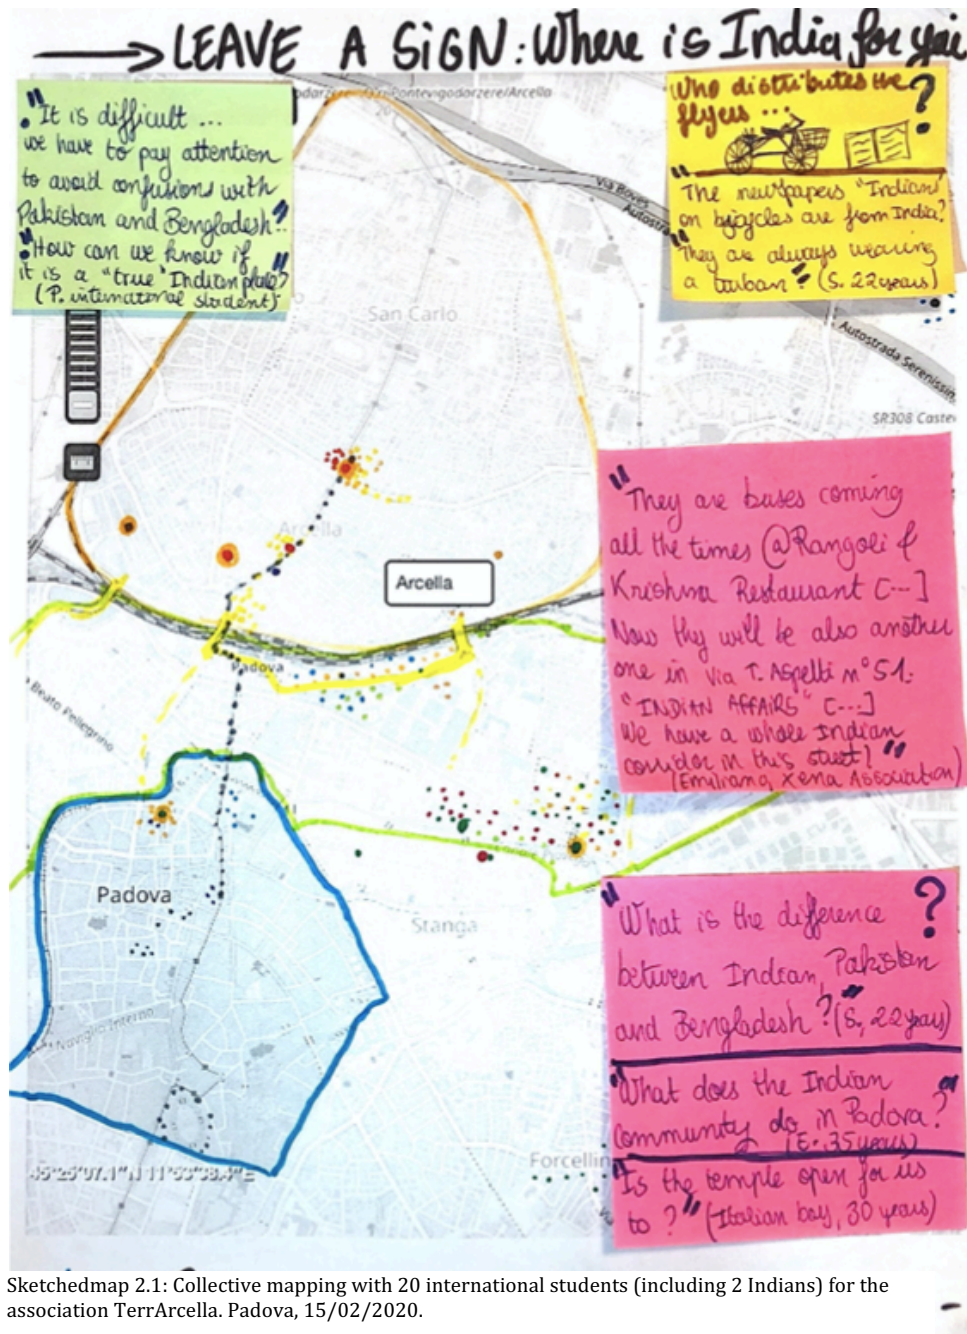 LEAVE A SIGN: Where is India for you
"It is difficult ...
we have to pay attention
to avoid confusions with
Pakistan and Bengladesh."
"How can we know if
it is a "true" Indian place?"
(P. international student)
Who distributes the
flyers ... ?
"The newspapers "Indians"
on bicycles are from India?
"They are always wearing
a turban" (S. 22 years)
Pontevigodarzere/Arcella
Via Boves
Autostra
San Carlo
Autostrada Serenissim
SR308 Caste
"They are buses coming
all the times @Rangoli &
Krishna Restaurant [...]
Now they will be also another
one in via T. Aspetti n°51:
"INDIAN AFFAIRS" [...]
We have a whole Indian
corridor in this street!"
(Emiliana, Xena Association)
Arcella
Arcella
Padova
Beato Pellegrino
Padova
Stanga
Naviglio Interno
"What is the difference ?
between Indian, Pakistan
and Bengladesh"?(S, 22 years)
"What does the Indian"
community do in Padova?
(E. 35 years)
"Is the temple open for us
to?" (Italian boy, 30 years)
Forcellin
45°25'07.1"N 11°53'38.4"E
Sketchedmap 2.1: Collective mapping with 20 international students (including 2 Indians) for the
association TerrArcella. Padova, 15/02/2020.